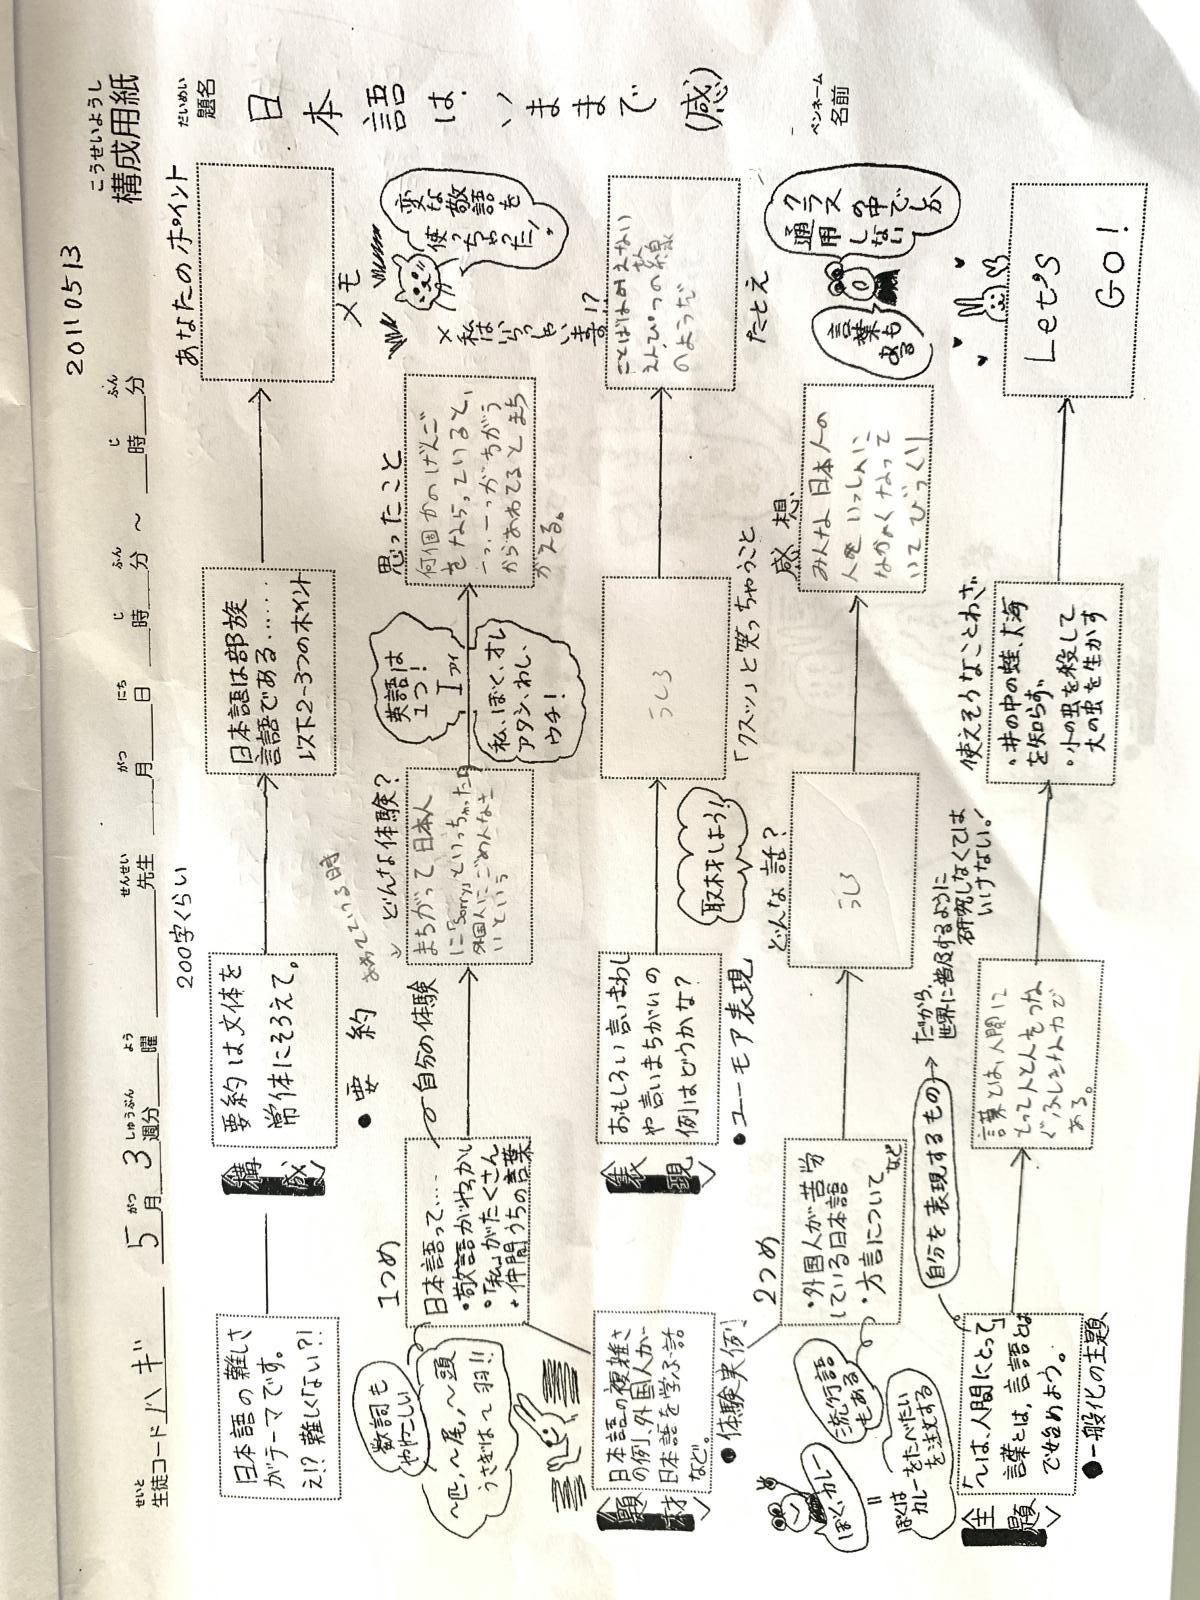 20110513
こうせいようし
構成用紙
せいと
生徒コード ハギ 5 がつ月 3 しゅうぶん週分 よう曜 せんせい先生 がつ月 にち日 じ時 ふん分 ～ じ時 ふん分
だいめい
題名
日本語は、いままで (感)
ペンネーム
名前
200字くらい
あなたのポイント
<構成>
日本語の難しさ
がテーマです。
え!? 難しくない?!
要約は文体を
常体にそろえて。
日本語は部族
言語である……
以下2~3つのポイント
●要約
メモ
1つめ
日本語って……
・敬語がややこしい
・「私」がたくさん
+仲間うちの言葉
数詞も
ややこしい
~匹、~尾、~頭
うさぎは~羽!!
自分の体験
どんな体験?
まちがって日本人
に「Sorry」といっちゃった
外国人にごめんなさ
いという
英語は
1つ!
I アイ
私、ぼく、オレ
アタシ、わし、
ウチ!
思ったこと
何個かのげんご
をならっていると、
からあわてるとまち
がえる。
変な敬語を
使っちゃった!
×私はいらっしゃいます!?
<題材>
日本語の複雑さ
の例、外国人が
日本語を学ぶ話
など。
●体験実例
<表現>
おもしろい言いまわし
や言いまちがいの
例はどうかな?
●ユーモア表現
取材しよう!
うしろ
「クスッ」と笑っちゃうこと
ことばは見えない
えんぴつの線
のようだ
たとえ
2つめ
・外国人が苦労
している日本語
・方言について
など
流行語
もある
ぼく、カレー
=
ぼくは
カレーをたべたい
を注文する
どんな話?
うしろ
感想
みんな日本人の
人といっしょに
なかよくなって
いてびっくり
クラス
の中でしか
通用しない
言葉も
ある
<主題>
「~は、人間にとって」
言葉とは、言語とは
で始めよう。
●一般化の主題
自分を表現するもの→だから、
世界に普及するように
研究しなくては
いけない!
言葉とは、人間に
とって人と人をつな
ぐふしぎな力で
ある。
使えそうなことわざ
・井の中の蛙、大海
を知らず。
・小の虫を殺して
大の虫を生かす
Let's
GO!